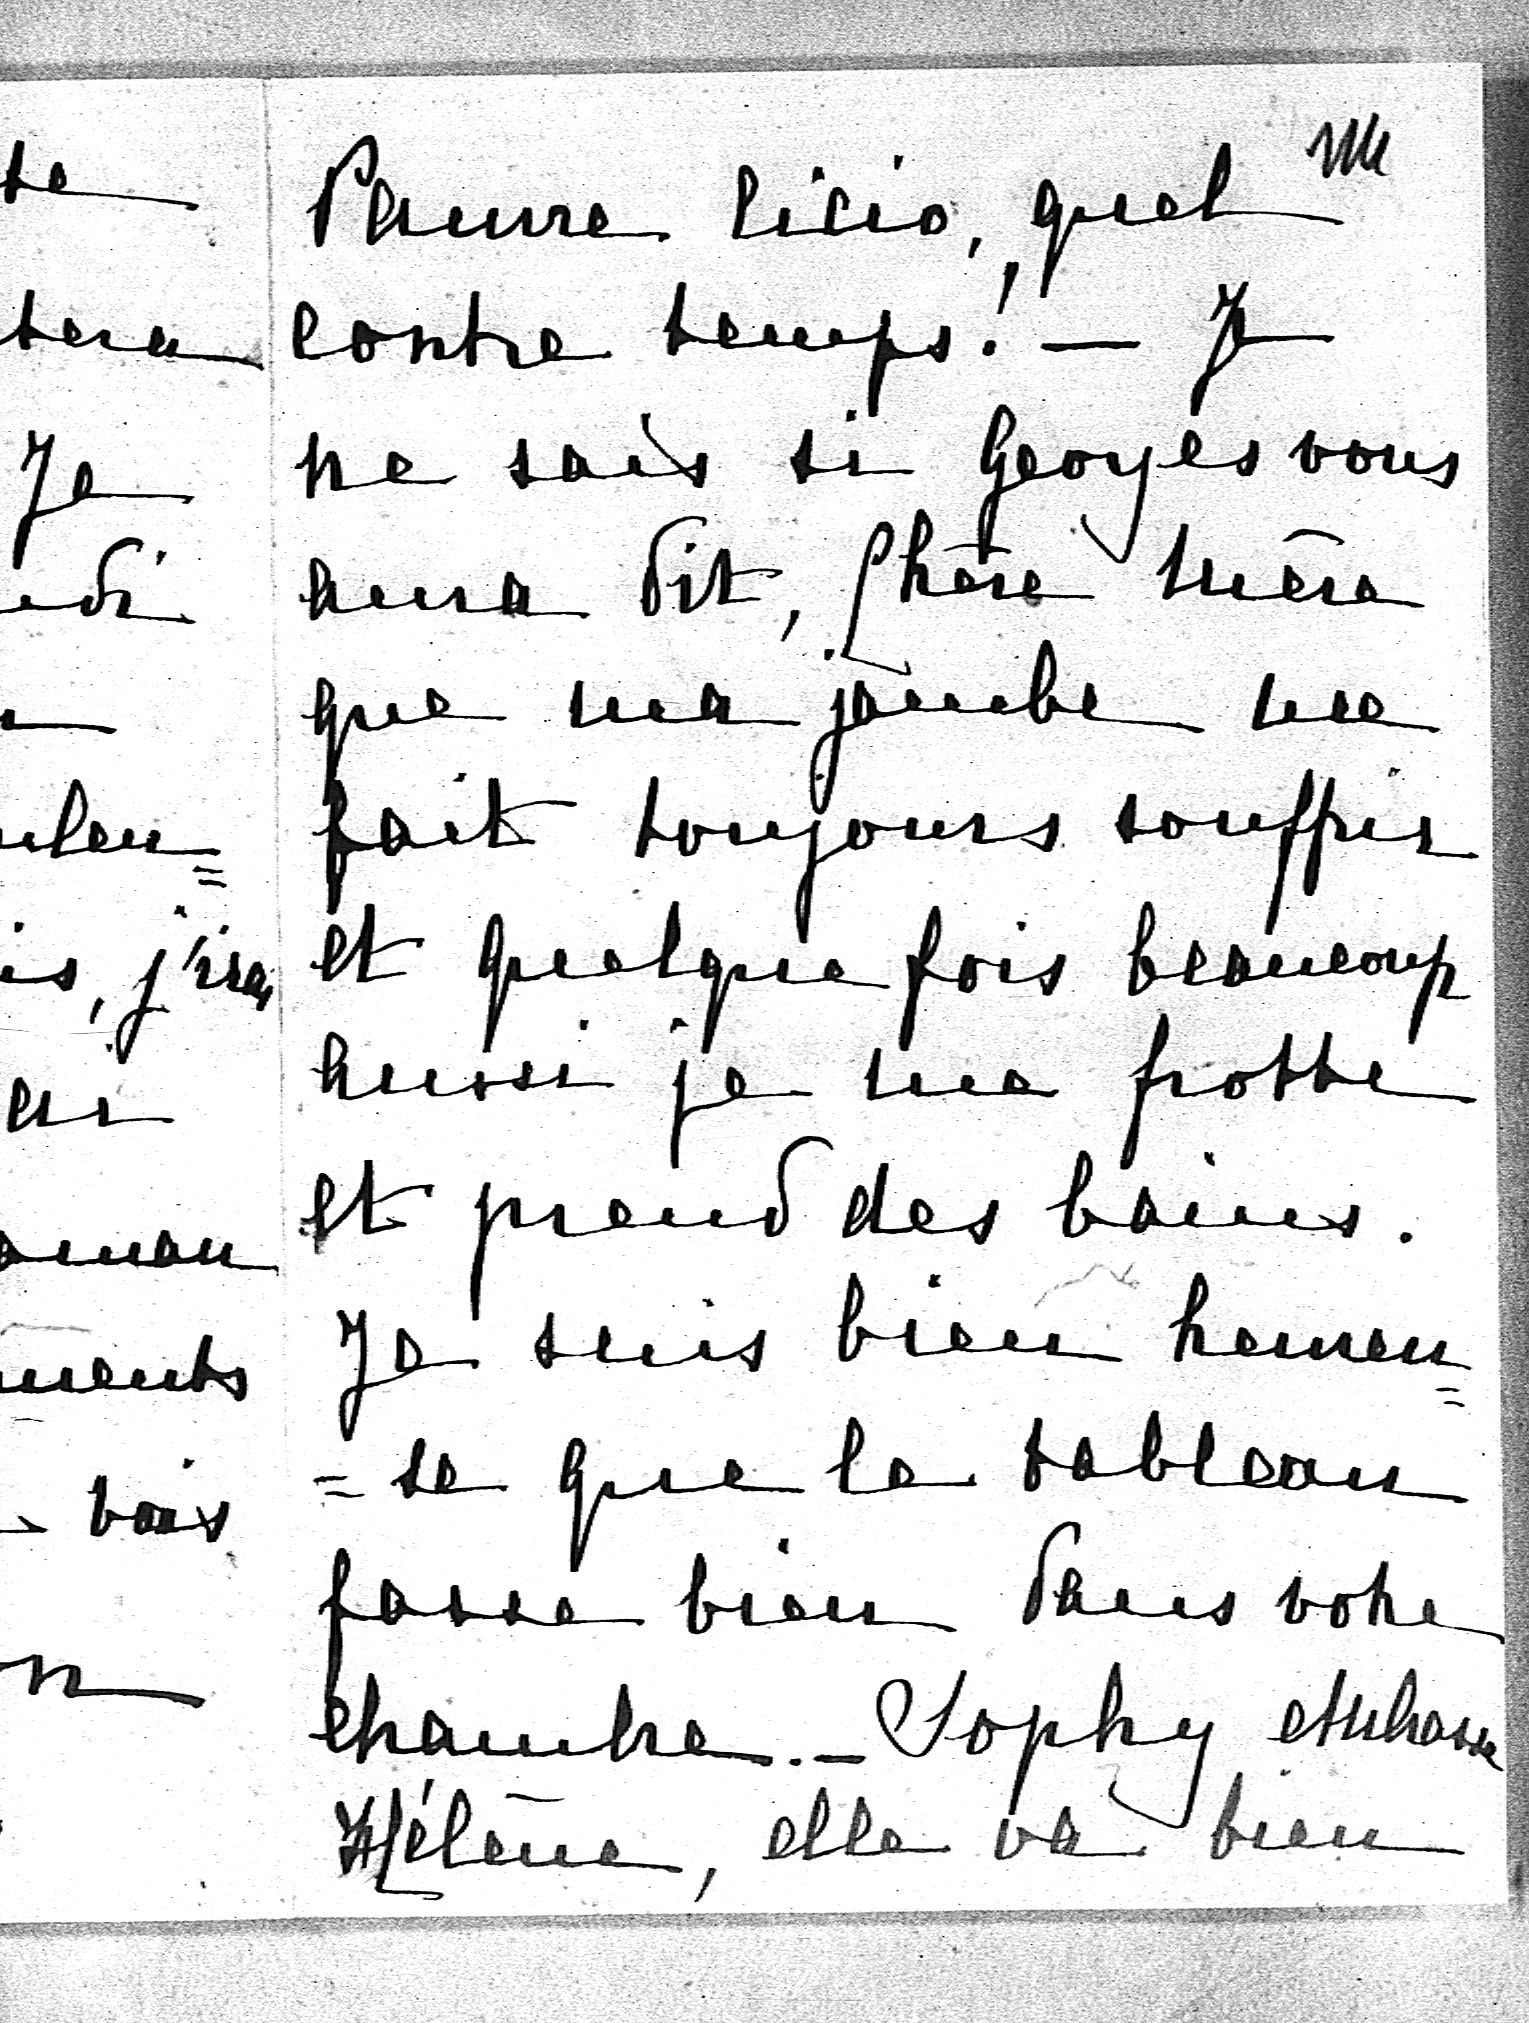 te
tera
Je
edi
uleu=
is, j'irai
eri
aman
ments
vais
on
Pauvre Licio, quel
contre temps! — Je
ne sais si Georges vous
aura dit, Chère Mère
que ma jambe me
fait toujours souffrir
et quelque fois beaucoup
aussi je me frotte
et prend des bains.
Je suis bien heureu
=
= se que le tableau
fasse bien dans votre
chambre. — Sophy embrasse
Hélène, elle va bien